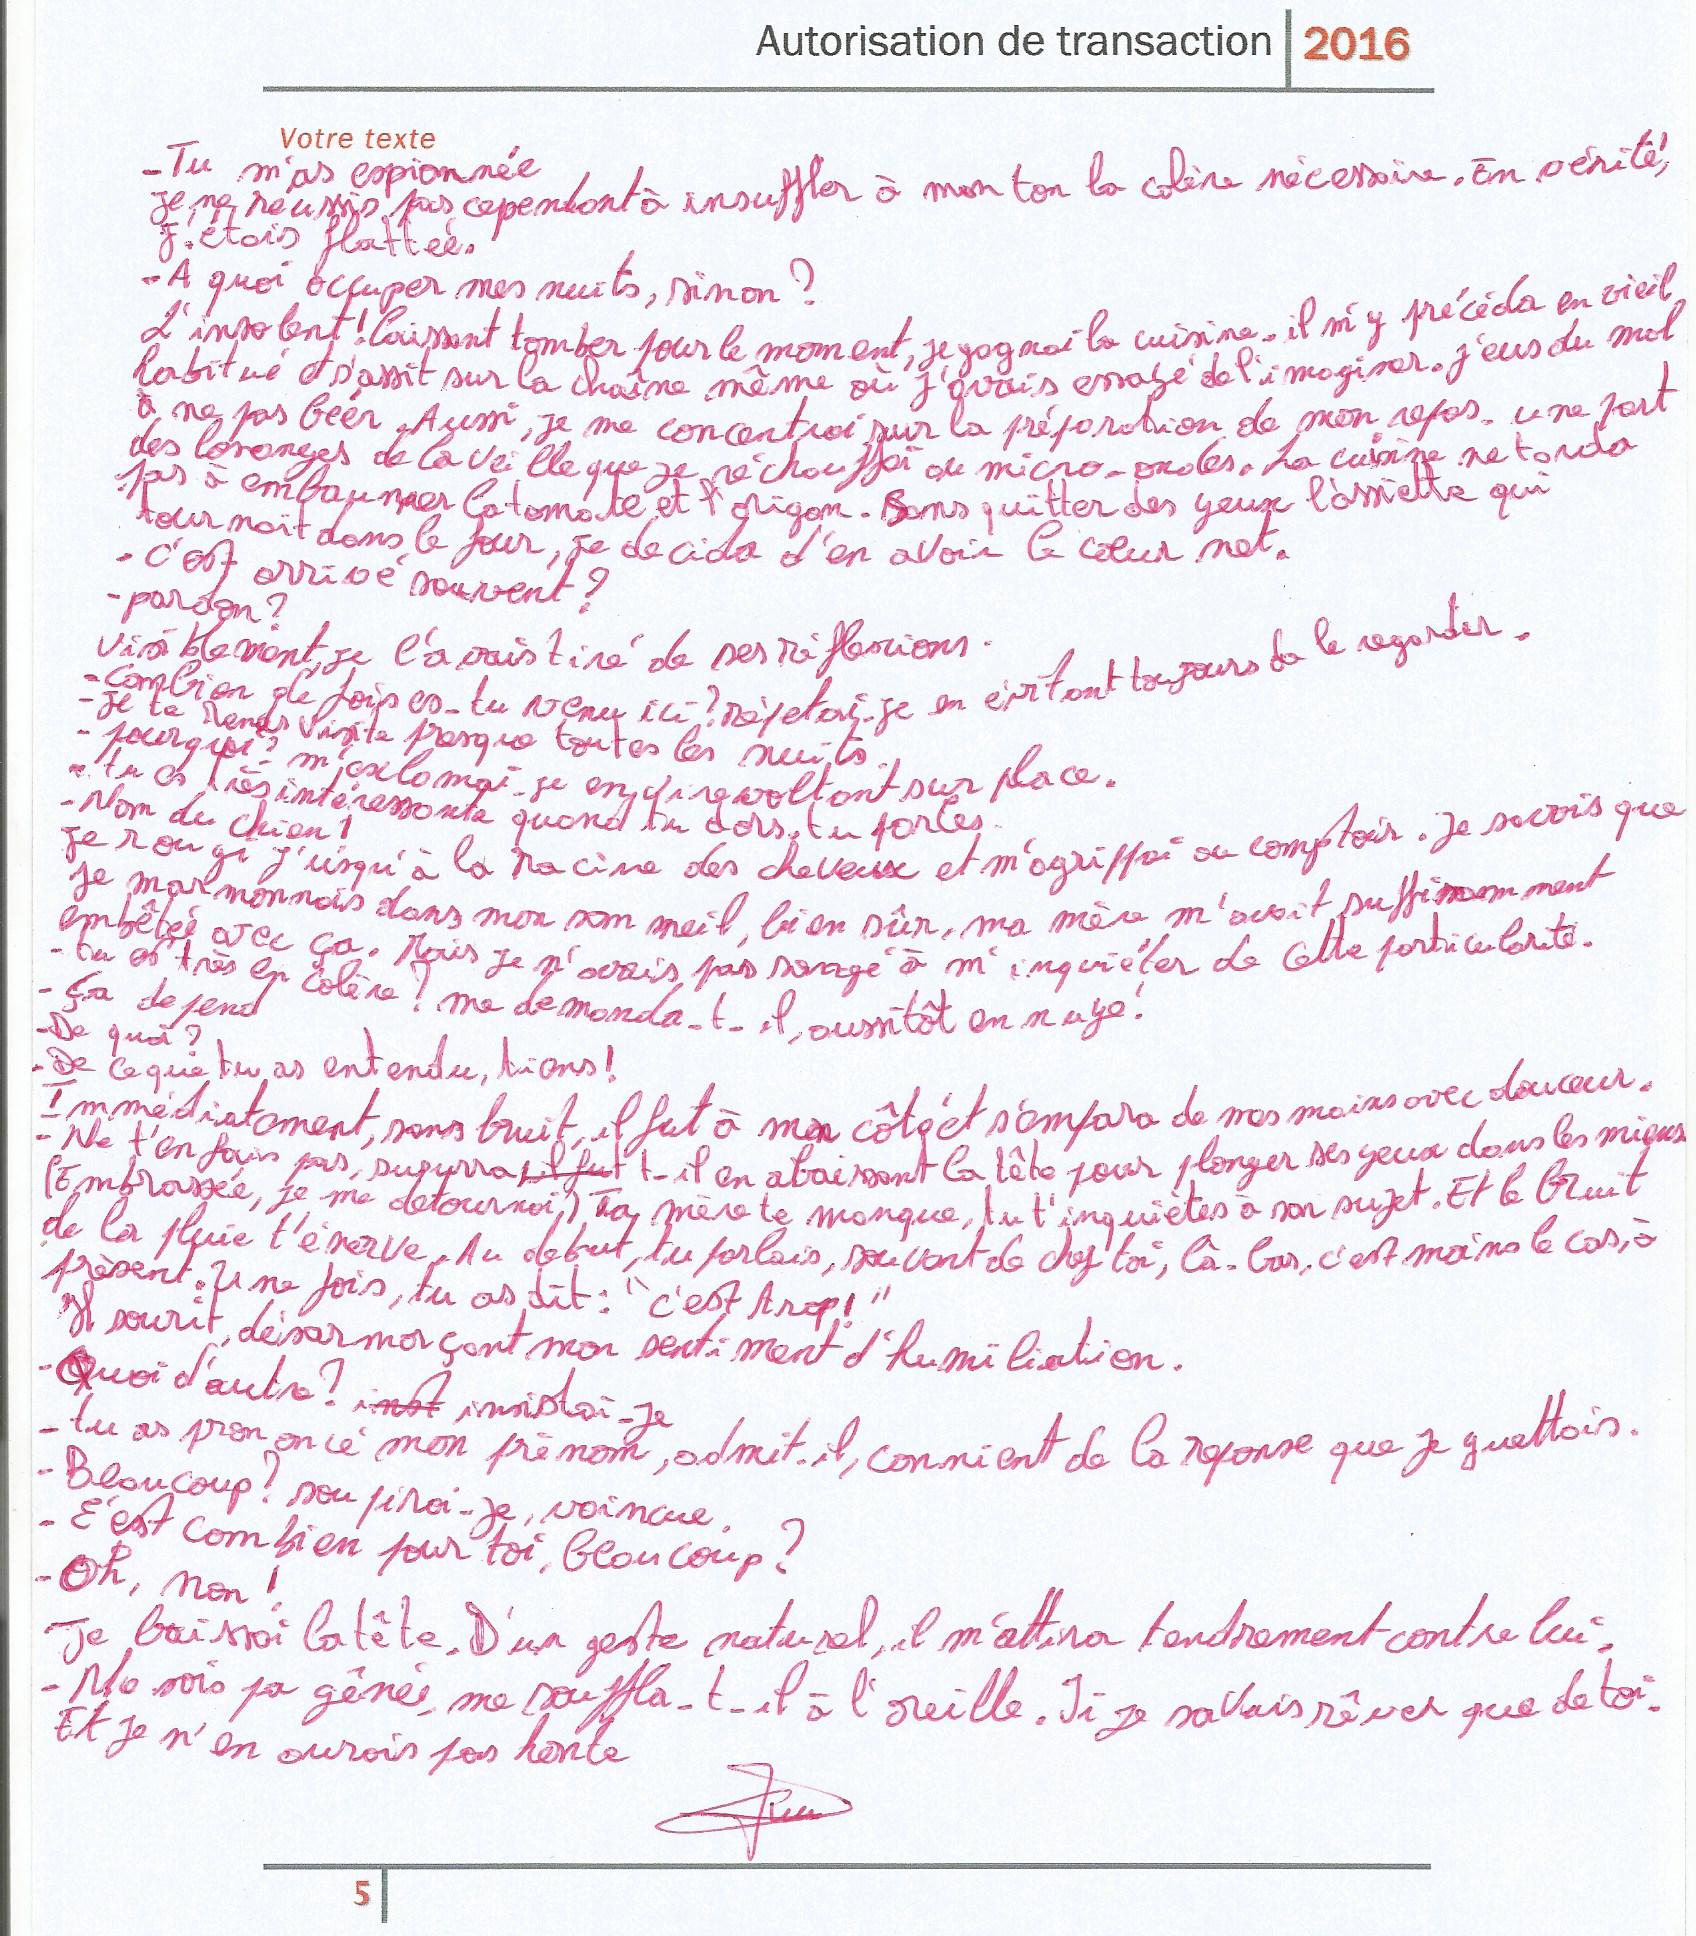 Autorisation de transaction 2016
Votre texte
-Tu m'as espionnée
je ne réussis pas cependant à insuffler à mon ton la colère nécessaire. En vérité,
j'étais flattée.
-A quoi occuper mes nuits, sinon?
L'insolent! laissant tomber pour le moment, je gagnai la cuisine. il m'y précéda en vieil
habitué et s'assit sur la chaîne même où j'avais essayé de l'imaginer. j'eus du mal
à ne pas béer. Aussi, je me concentrai sur la préparation de mon repas. une part
des losanges de la veille que je réchauffai au micro-ondes. La cuisine ne tarda
pas à embaumer la tomate et l'origan. Sans quitter des yeux l'assiette qui
tournait dans le four, je décida d'en avoir le cœur net.
- c'est arrivé souvent?
-pardon?
Visiblement, je l'avais tiré de ses réflexions.
-Combien de fois es-tu venu ici? répétai-je en évitant toujours de le regarder.
-je te rends visite presque toutes les nuits.
- pourquoi? m'exclamai-je en virevoltant sur place.
- tu es très intéressante quand tu dors. tu parles.
-Nom du chien!
je rougi j'usqu'à la racine des cheveux et m'agrippai au comptoir. je savais que
je marmonnais dans mon sommeil, bien sûr, ma mère m'avait suffisamment
embêtée avec ça. Mais je n'avais pas songé à m'inquiéter de cette particularité.
- tu es très en colère? me demanda-t-il, aussitôt ennuyé!
- Ça depend
-De quoi?
-De ce que tu as entendu, tiens!
Immédiatement, sans bruit, il fut à mon côté et s'empara de mes mains avec douceur.
- Ne t'en fais pas, susurra il fut t-il en abaissant la tête pour plonger ses yeux dans les miens
(Embrassée, je me detournai) Ta mère te manque, tu t'inquiètes à son sujet. Et le bruit
de la pluie t'énerve. Au debut, tu parlais, souvent de chez toi, là-bas, c'est moins le cas, à
présent. Une fois, tu as dit: "c'est trop!"
Il sourit, désarmorçant mon sentiment d'humiliation.
-Quoi d'autre? inst insistai-je
- tu as prononcé mon prénom, admit-il, conscient de la reponse que je guettais.
- Beaucoup? soupirai-je, vaincue.
- C'est combien pour toi, beaucoup?
-Oh, non!
Je baissai la tête. D'un geste naturel, il m'attira tendrement contre lui.
- Ne sois pa gênée, me souffla-t-il à l'oreille. Si je savais rêver que de toi.
Et je n'en aurois pas honte
5